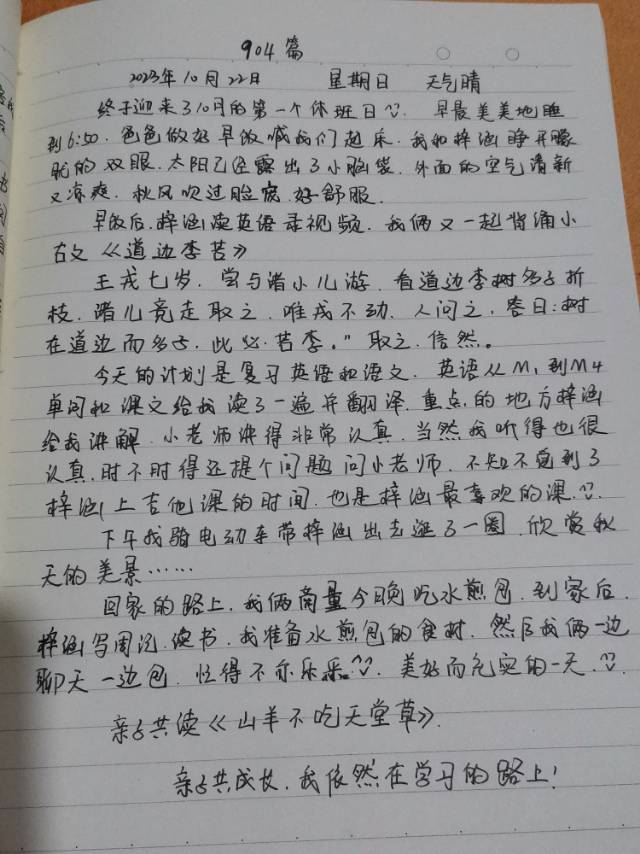 904篇
2023年10月22日 星期日 天气晴
终于迎来了10月的第一个休班日。早晨美美地睡
到6:50.爸爸做好早饭喊我们起床.我和梓涵睁开朦
胧的双眼.太阳已经露出了小脑袋.外面的空气清新
又凉爽.秋风吹过脸庞.好舒服.
早饭后.梓涵读英语录视频.我俩又一起背诵小
古文《道边李苦》
王戎七岁.尝与诸小儿游.看道边李树多子折
枝.诸儿竞走取之.唯戎不动.人问之,答曰:树
在道边而多子.此必苦李。"取之.信然。
今天的计划是复习英语和语文.英语从M1到M4
单词和课文给我读了一遍并翻译.重点的地方梓涵
给我讲解.小老师讲得非常认真.当然我听得也很
认真.时不时得还提个问题问小老师.不知不觉到了
梓涵上吉他课的时间.也是梓涵最喜欢的课.
下午我骑电动车带梓涵出去逛了一圈.欣赏秋
天的美景……
回家的路上.我俩商量今晚吃水煎包.到家后.
梓涵写周记.读书.我准备水煎包的食材.然后我俩一边
聊天一边包.忙得不亦乐乎.美好而充实的一天.
亲子共读《山羊不吃天堂草》.
亲子共成长.我依然在学习的路上!